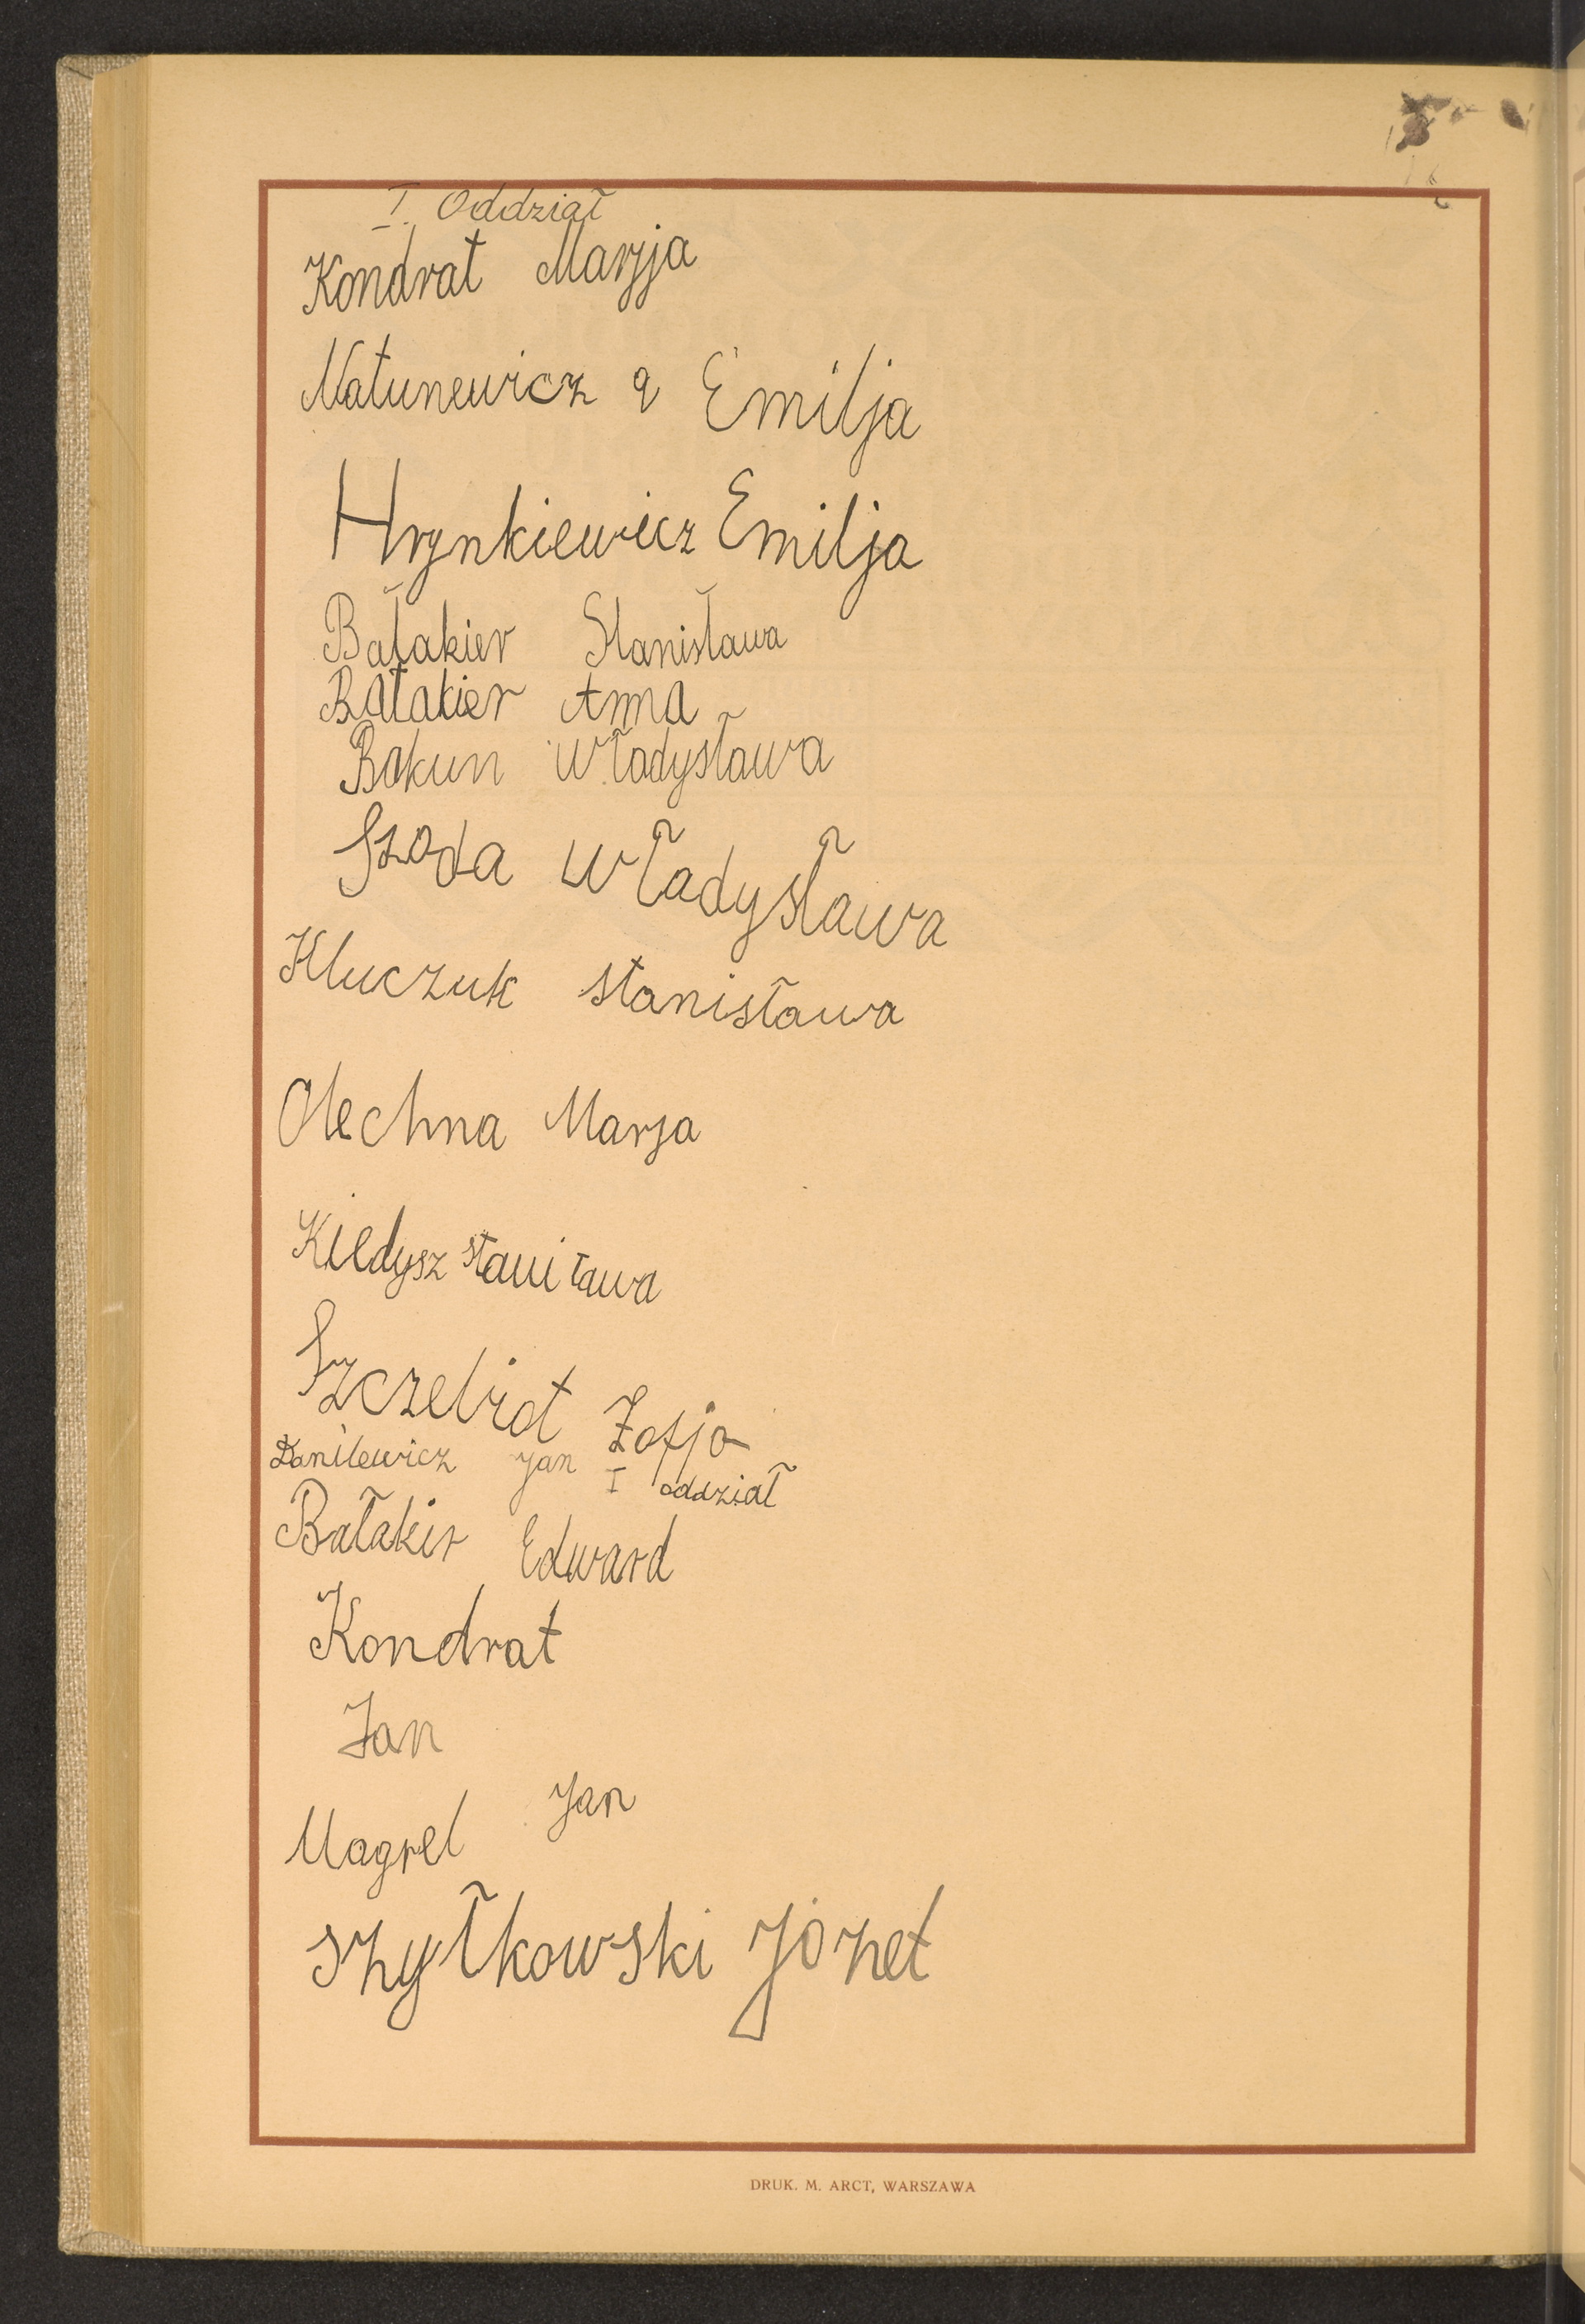 I. Oddział
Kondrat Marjja
Natunewicz a Emilja
Hrynkiewicz Emilja
Bałakier Stanisława
Bałakier Anna
Bokun Władysława
Szoda Władysława
Kluczuk Stanisława
Olechna Marja
Kiedysz Stani ława
Szczebiot Zofja
Danilewicz Jan I oddział
Bałakir Edward
Kondrat
Jan
Magrel Jan
Szyłkowski Józet
DRUK. M. ARCT, WARSZAWA